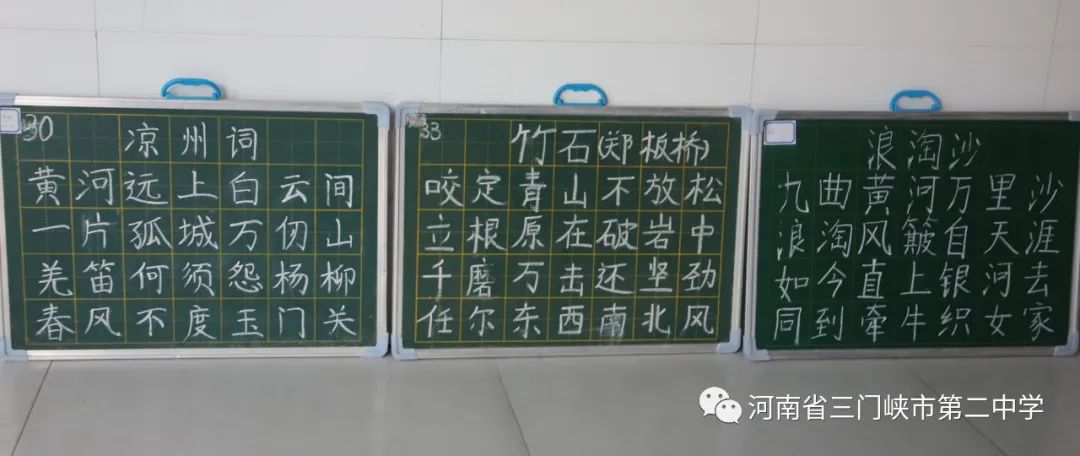 30
凉州词
黄河远上白云间
一片孤城万仞山
羌笛何须怨杨柳
春风不度玉门关
33
竹石(郑板桥)
咬定青山不放松
立根原在破岩中
千磨万击还坚劲
任尔东西南北风
浪淘沙
九曲黄河万里沙
浪淘风簸自天涯
如今直上银河去
同到牵牛织女家
河南省三门峡市第二中学